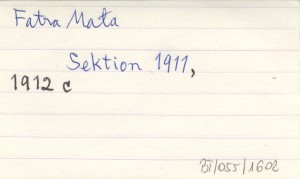 Fatra Mała
Sektion 1911,
1912 c
BI/055/1602